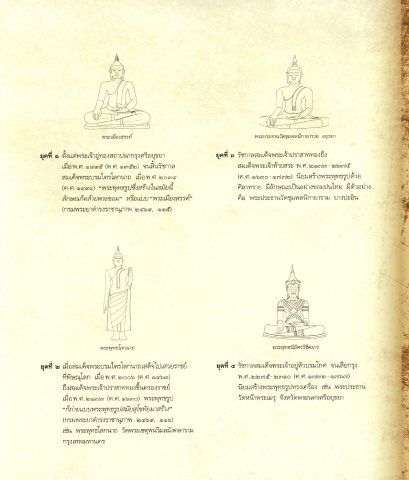 พระเมืองสรรค์
ยุคที่ ๑ ตั้งแต่พระเจ้าอู่ทองสถาปนากรุงศรีอยุธยา
เมื่อ พ.ศ. ๑๘๙๕ (ค.ศ. ๑๓๕๒) จนสิ้นรัชกาล
สมเด็จพระบรมไตรโลกนาถ เมื่อ พ.ศ. ๒๐๓๔
(ค.ศ. ๑๔๙๑) "พระพุทธรูปซึ่งสร้างในสมัยนี้
ลักษณะคล้ายพระขอม" หรือแบบ "พระเมืองสรรค์"
(กรมพระยาดำรงราชานุภาพ ๒๔๖๙, ๑๑๕)
พระประธานวัดชุมพลนิกายาราม อยุธยา
ยุคที่ ๓ รัชกาลสมเด็จพระเจ้าปราสาททองถึง
สมเด็จพระเจ้าท้ายสระ พ.ศ. ๒๑๗๓-๒๒๗๕
(ค.ศ. ๑๖๓๐-๑๗๓๒) นิยมสร้างพระพุทธรูปด้วย
ศิลาทราย มีลักษณะเป็นอย่างขอมปนไทย มีตัวอย่าง
คือ พระประธานวัดชุมพลนิกายาราม บางปะอิน
พระพุทธโลกนาถ
ยุคที่ ๒ เมื่อสมเด็จพระบรมไตรโลกนาถเสด็จไปเสวยราชย์
ที่พิษณุโลก เมื่อ พ.ศ. ๒๐๐๖ (ค.ศ. ๑๔๖๓)
ถึงสมเด็จพระเจ้าปราสาททองขึ้นครองราชย์
เมื่อ พ.ศ. ๒๑๗๓ (ค.ศ. ๑๖๓๐) พระพุทธรูป
(กรมพระยาดำรงราชานุภาพ ๒๔๖๙, ๑๑๖)
เช่น พระพุทธโลกนาถ วัดพระเชตุพนวิมลมังคลาราม
กรุงเทพมหานคร
พระพุทธนิมิตรวิชิตมาร
ยุคที่ ๔ รัชกาลสมเด็จพระเจ้าอยู่หัวบรมโกศ จนเสียกรุง
พ.ศ. ๒๒๗๕-๒๓๑๐ (ค.ศ. ๑๗๓๒-๑๗๖๗)
นิยมสร้างพระพุทธรูปทรงเครื่อง เช่น พระประธาน
วัดหน้าพระเมรุ จังหวัดพระนครศรีอยุธยา